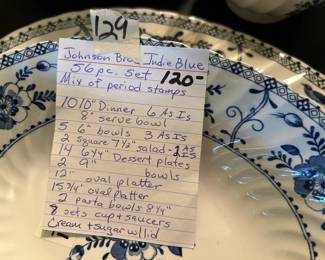 129
Johnson Bro. Indie Blue
56 pc. Set 120-
Mix of period stamps
10 10" Dinner 6 As Is
8" serve bowl
5 6" bowls 3 As Is
2 square 7½" salad - 1 As Is
14 6¼" Dessert plates
2 9" bowls
12" oval platter
15¾" oval platter
2 pasta bowls 8¼"
8 sets cup & saucers
Cream + sugar w/lid